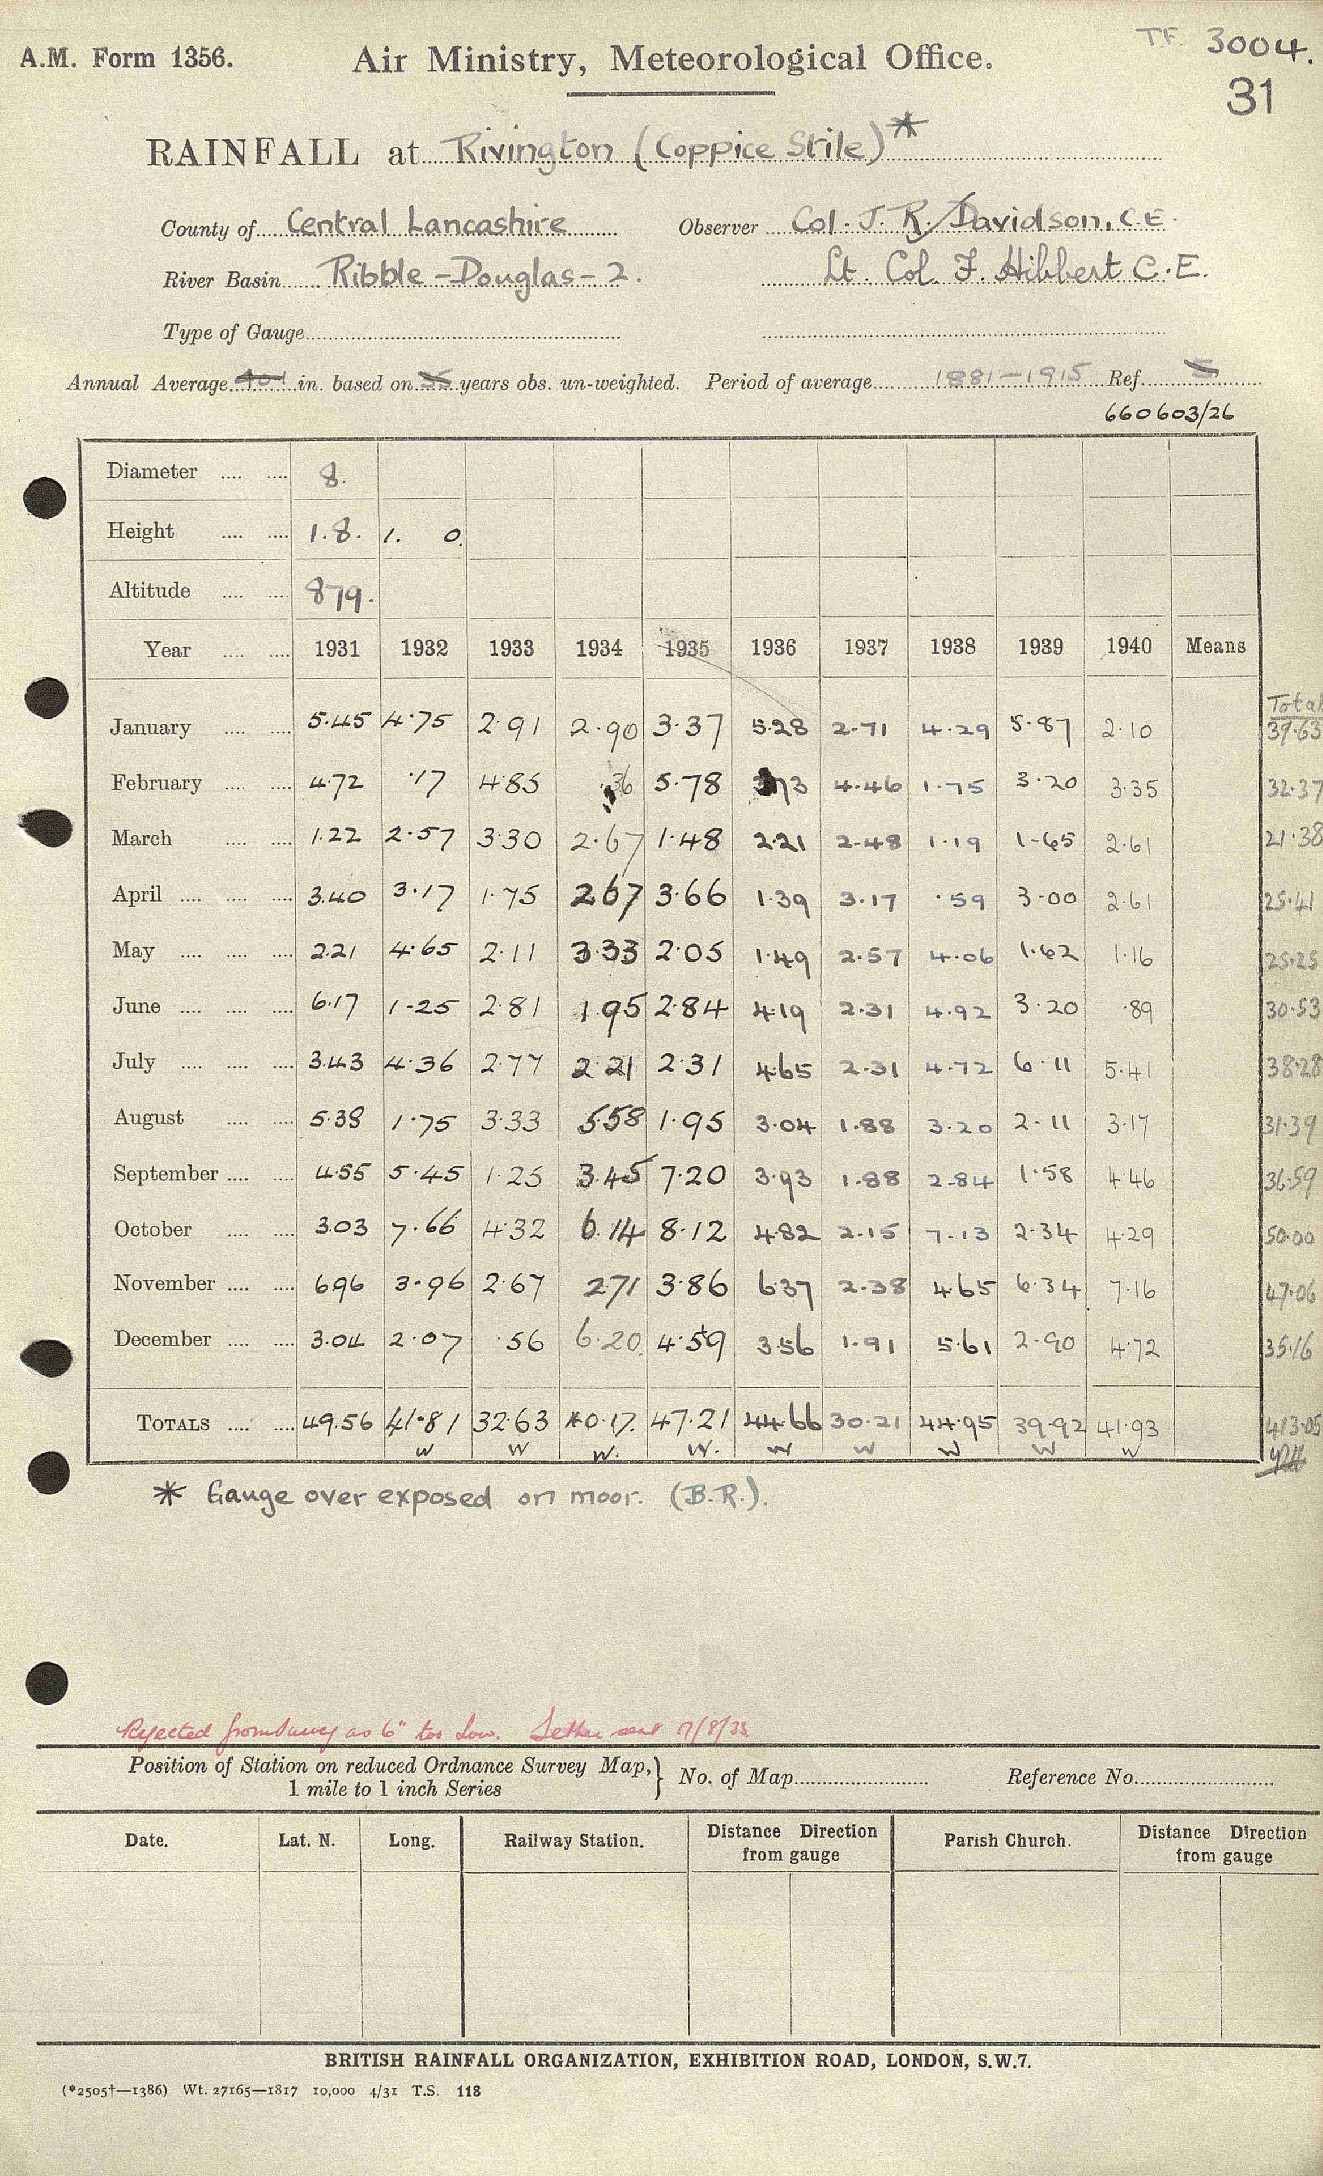 A.M. Form 1356. Air Ministry, Meteorological Office. T.F. 3004.
31
RAINFALL at Rivington (Coppice Stile)*
County of Central Lancashire Observer Col. J. R. Davidson, C.E.
River Basin Ribble - Douglas - 2. Lt. Col. F. Hibbert C.E.
Type of Gauge
Annual Average in. based on 35 years obs. un-weighted. Period of average 1881-1915 Ref. 5
660603/26
Diameter 8.
Height 1.8. 1. 0.
Altitude 879.
Year 1931 1932 1933 1934 1935 1936 1937 1938 1939 1940 Means
Total
January 5.45 4.75 2.91 2.90 3.37 5.28 2.71 4.29 5.87 2.10 39.63
February 4.72 .17 4.85 .36 5.78 3.73 4.46 1.75 3.20 3.35 32.37
March 1.22 2.57 3.30 2.67 1.48 2.21 2.48 1.19 1.65 2.61 21.38
April 3.40 3.17 1.75 2.67 3.66 1.39 3.17 .59 3.00 2.61 25.41
May 2.21 4.65 2.11 3.33 2.05 1.49 2.57 4.06 1.62 1.16 25.25
June 6.17 1.25 2.81 1.95 2.84 4.19 2.31 4.92 3.20 .89 30.53
July 3.43 4.36 2.77 2.21 2.31 4.65 2.31 4.72 6.11 5.41 38.28
August 5.38 1.75 3.33 5.58 1.95 3.04 1.88 3.20 2.11 3.17 31.39
September 4.55 5.45 1.25 3.45 7.20 3.93 1.88 2.84 1.58 4.46 36.59
October 3.03 7.66 4.32 6.14 8.12 4.82 2.15 7.13 2.34 4.29 50.00
November 6.96 3.96 2.67 2.71 3.86 6.37 2.38 4.65 6.34 7.16 47.06
December 3.04 2.07 .56 6.20 4.59 3.56 1.91 5.61 2.90 4.72 35.16
TOTALS 49.56 41.81 32.63 40.17. 47.21 44.66 30.21 44.95 39.92 41.93 413.05
w w w. w. w w w w w
* Gauge over exposed on moor. (B.R.).
Rejected from Survey as 6" too low. Letter sent 7/8/33
Position of Station on reduced Ordnance Survey Map, } No. of Map Reference No.
1 mile to 1 inch Series
Date. Lat. N. Long. Railway Station. Distance Direction from gauge Parish Church. Distance Direction from gauge
BRITISH RAINFALL ORGANIZATION, EXHIBITION ROAD, LONDON, S.W.7.
(*2505†—1386) Wt. 27165—1817 10,000 4/31 T.S. 118